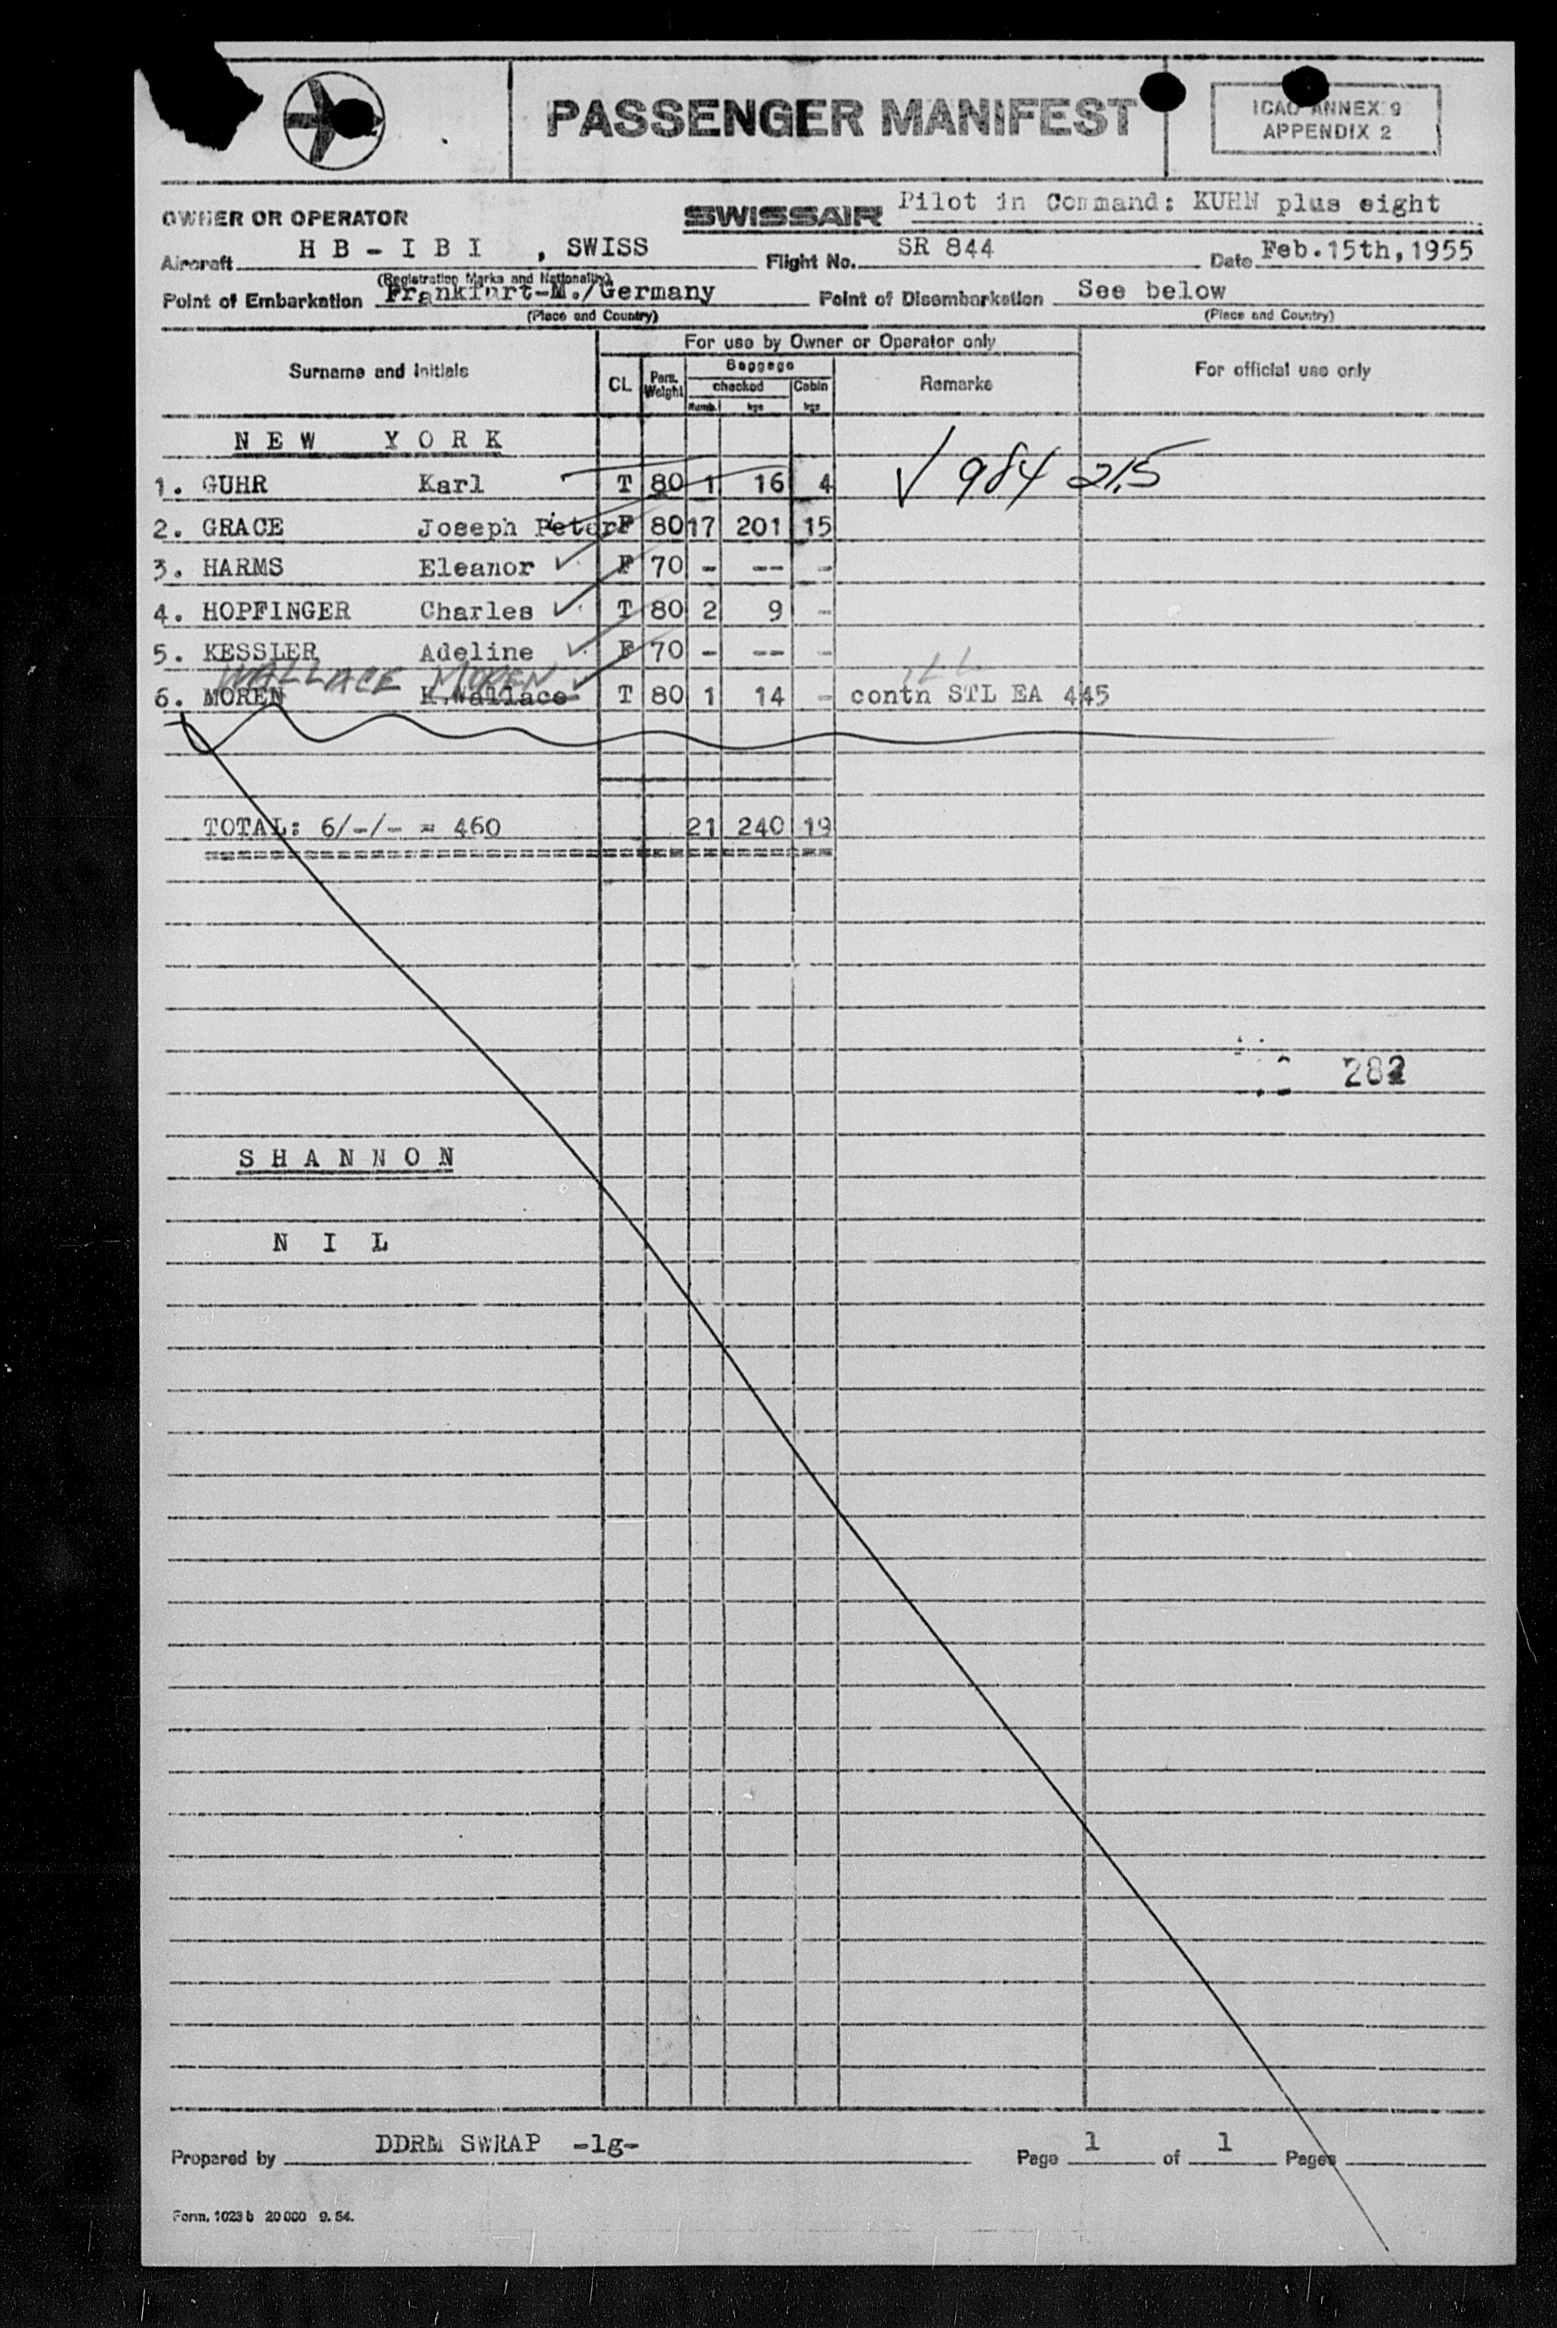 PASSENGER MANIFEST
ICAO ANNEX 9
APPENDIX 2
OWNER OR OPERATOR SWISSAIR Pilot in Command: KUHN plus eight
Aircraft H B - I B I , SWISS Flight No. SR 844 Date Feb.15th,1955
(Registration Marks and Nationality)
Point of Embarkation Frankfurt-M./Germany Point of Disembarkation See below
(Place and Country) (Place and Country)
For use by Owner or Operator only
Surname and initials CL Pers. Weight Baggage Remarks For official use only
checked Cabin
Numb. kgs kgs
N E W Y O R K
1. GUHR Karl T 80 1 16 4 √ 984 215
2. GRACE Joseph Peter F 80 17 201 15
3. HARMS Eleanor F 70 - -- -
4. HOPFINGER Charles T 80 2 9 -
5. KESSLER Adeline F 70 - -- -
WALLACE MOREN
6. MOREN K.Wallace T 80 1 14 - contn STL EA 445
TOTAL: 6/-/- = 460 21 240 19
282
S H A N N O N
N I L
Prepared by DDRM SWRAP -lg- Page 1 of 1 Pages
Form. 1023 b 20 000 9. 54.